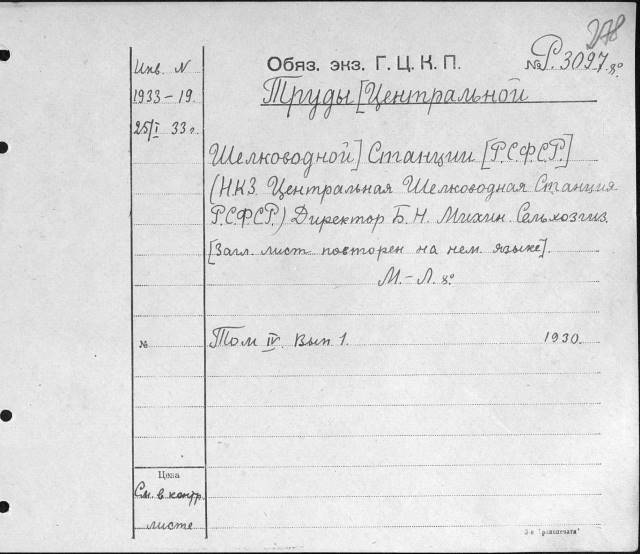 278
Инв. N
Обяз. экз. Г. Ц. К. П.
№ Р. 3097 8°
1933-19.
Труды [Центральной
25/I 33 г.
Шелководной] Станции [Р.С.Ф.С.Р.]
(НКЗ Центральная Шелководная Станция
Р.С.Ф.С.Р.) Директор Б. Н. Михин. Сельхозгиз.
[Загл. лист повторен на нем. языке].
М.-Л. 8°
№
Том IV. Вып 1. 1930.
Цена
См. в контр.
листе